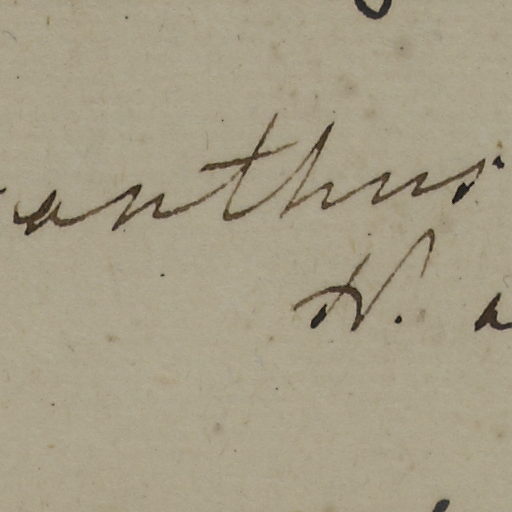 anthus
N. a